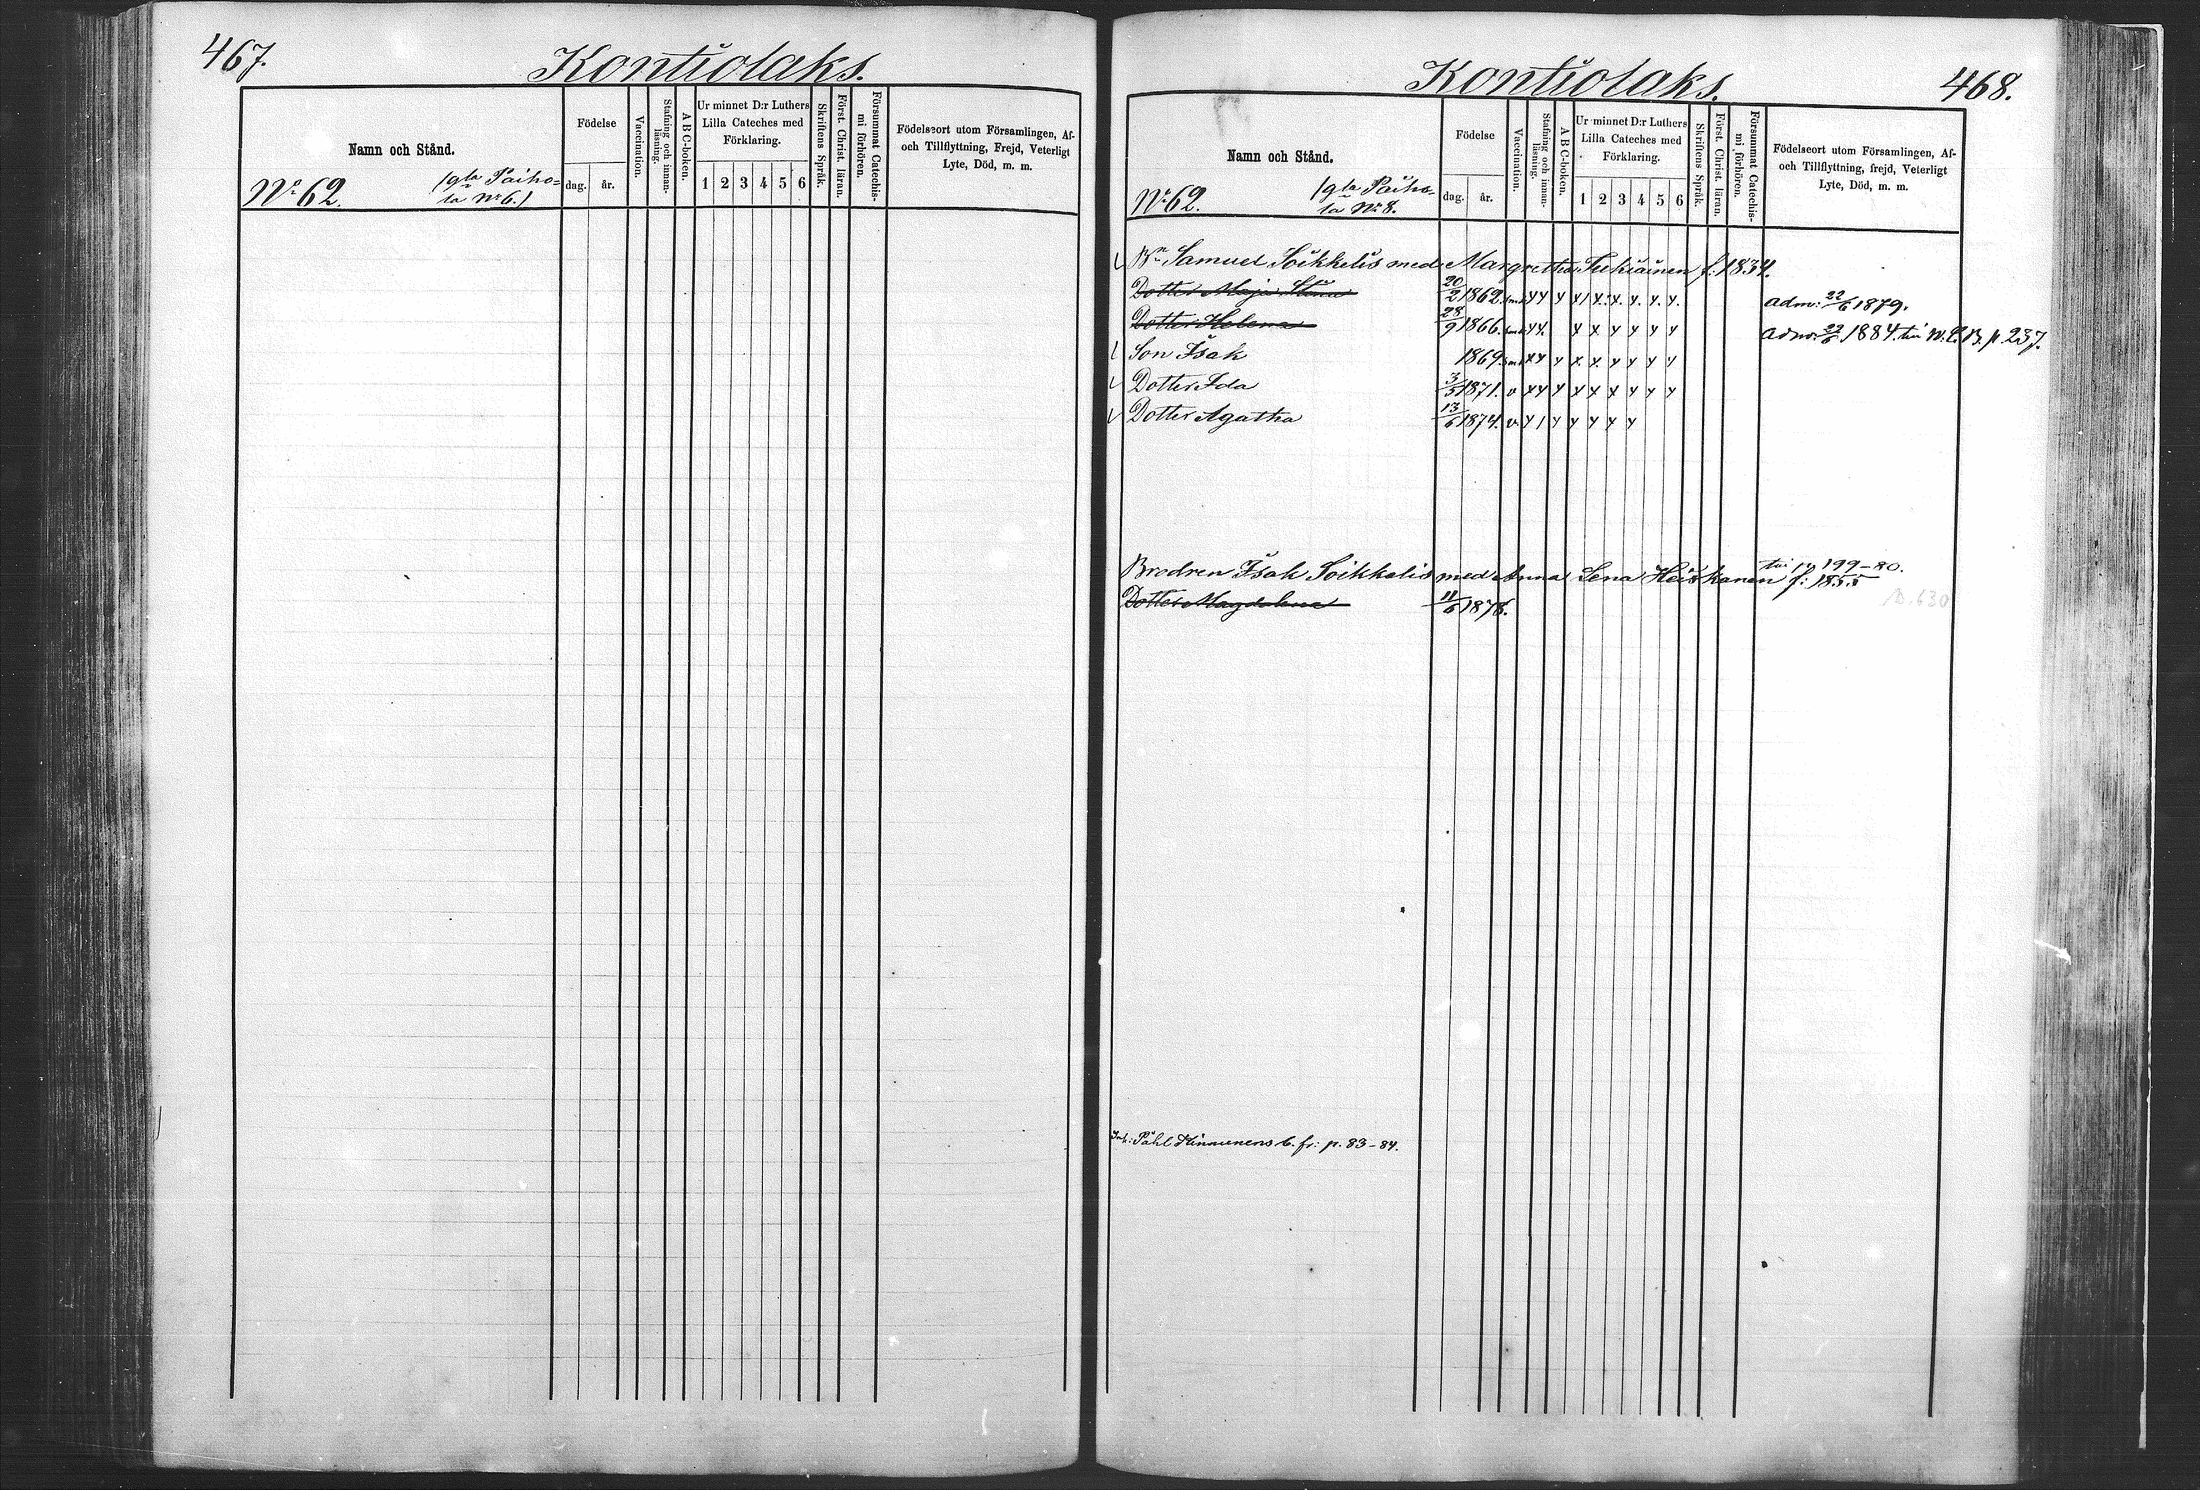 467.
Kontiolaks.
Namn och Stånd.
Nº 62. /gla Paiho=
la Nº 6./
Födelse
dag. år.
Vaccination.
Stafning och innan-
läsning.
A B C-boken.
Ur minnet D:r Luthers
Lilla Cateches med
Förklaring.
1 2 3 4 5 6
Skriftens Språk.
Först. Christ. läran.
Försummat Catechis-
mi förhören.
Födelseort utom Församlingen, Af-
och Tillflyttning, Frejd, Veterligt
Lyte, Död, m. m.
Kontiolaks.
468.
Namn och Stånd.
Nº 62. /gla Paiho-
la Nº 8.
Födelse
dag. år.
Vaccination.
Stafning och innan-
läsning.
A B C-boken.
Ur minnet D:r Luthers
Lilla Cateches med
Förklaring.
1 2 3 4 5 6
Skriftens Språk.
Först. Christ. läran.
Försummat Catechis-
mi förhören.
Födelseort utom Församlingen, Af-
och Tillflyttning, frejd, Veterligt
Lyte, Död, m. m.
Bn Samuel Soikkelis med Margretha Turkiainen f: 1834.
Dotter Maja Stina 20/2 1862. adm: 22/6 1879.
Dotter Helena 28/9 1866. adm: 22/6 1884. till N.L.B. p 237.
Son Isak 1869.
Dotter Ida 3/5 1871. v
Dotter Agatha 13/6 1874. v.
till p 199-80.
Brodren Isak Soikkelis med Anna Lena Heiskanen f: 1855
Dotter Magdalena 11/6 1878. B. 630
Inh: Påhl Hinnunens b. fr: p. 83-84.